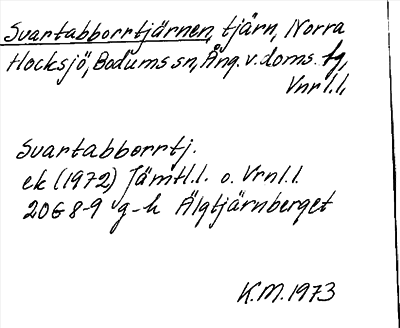 Svartabborrtjärnen, tjärn, Norra
Hocksjö, Bodums sn, Ång. v. doms. fg,
Vnr l.l,
Svartabborrtj.
ek (1972) Jämtl.l. o. Vrnl.l.
20G 8-9 g-h Älgtjärnberget
K.M. 1973